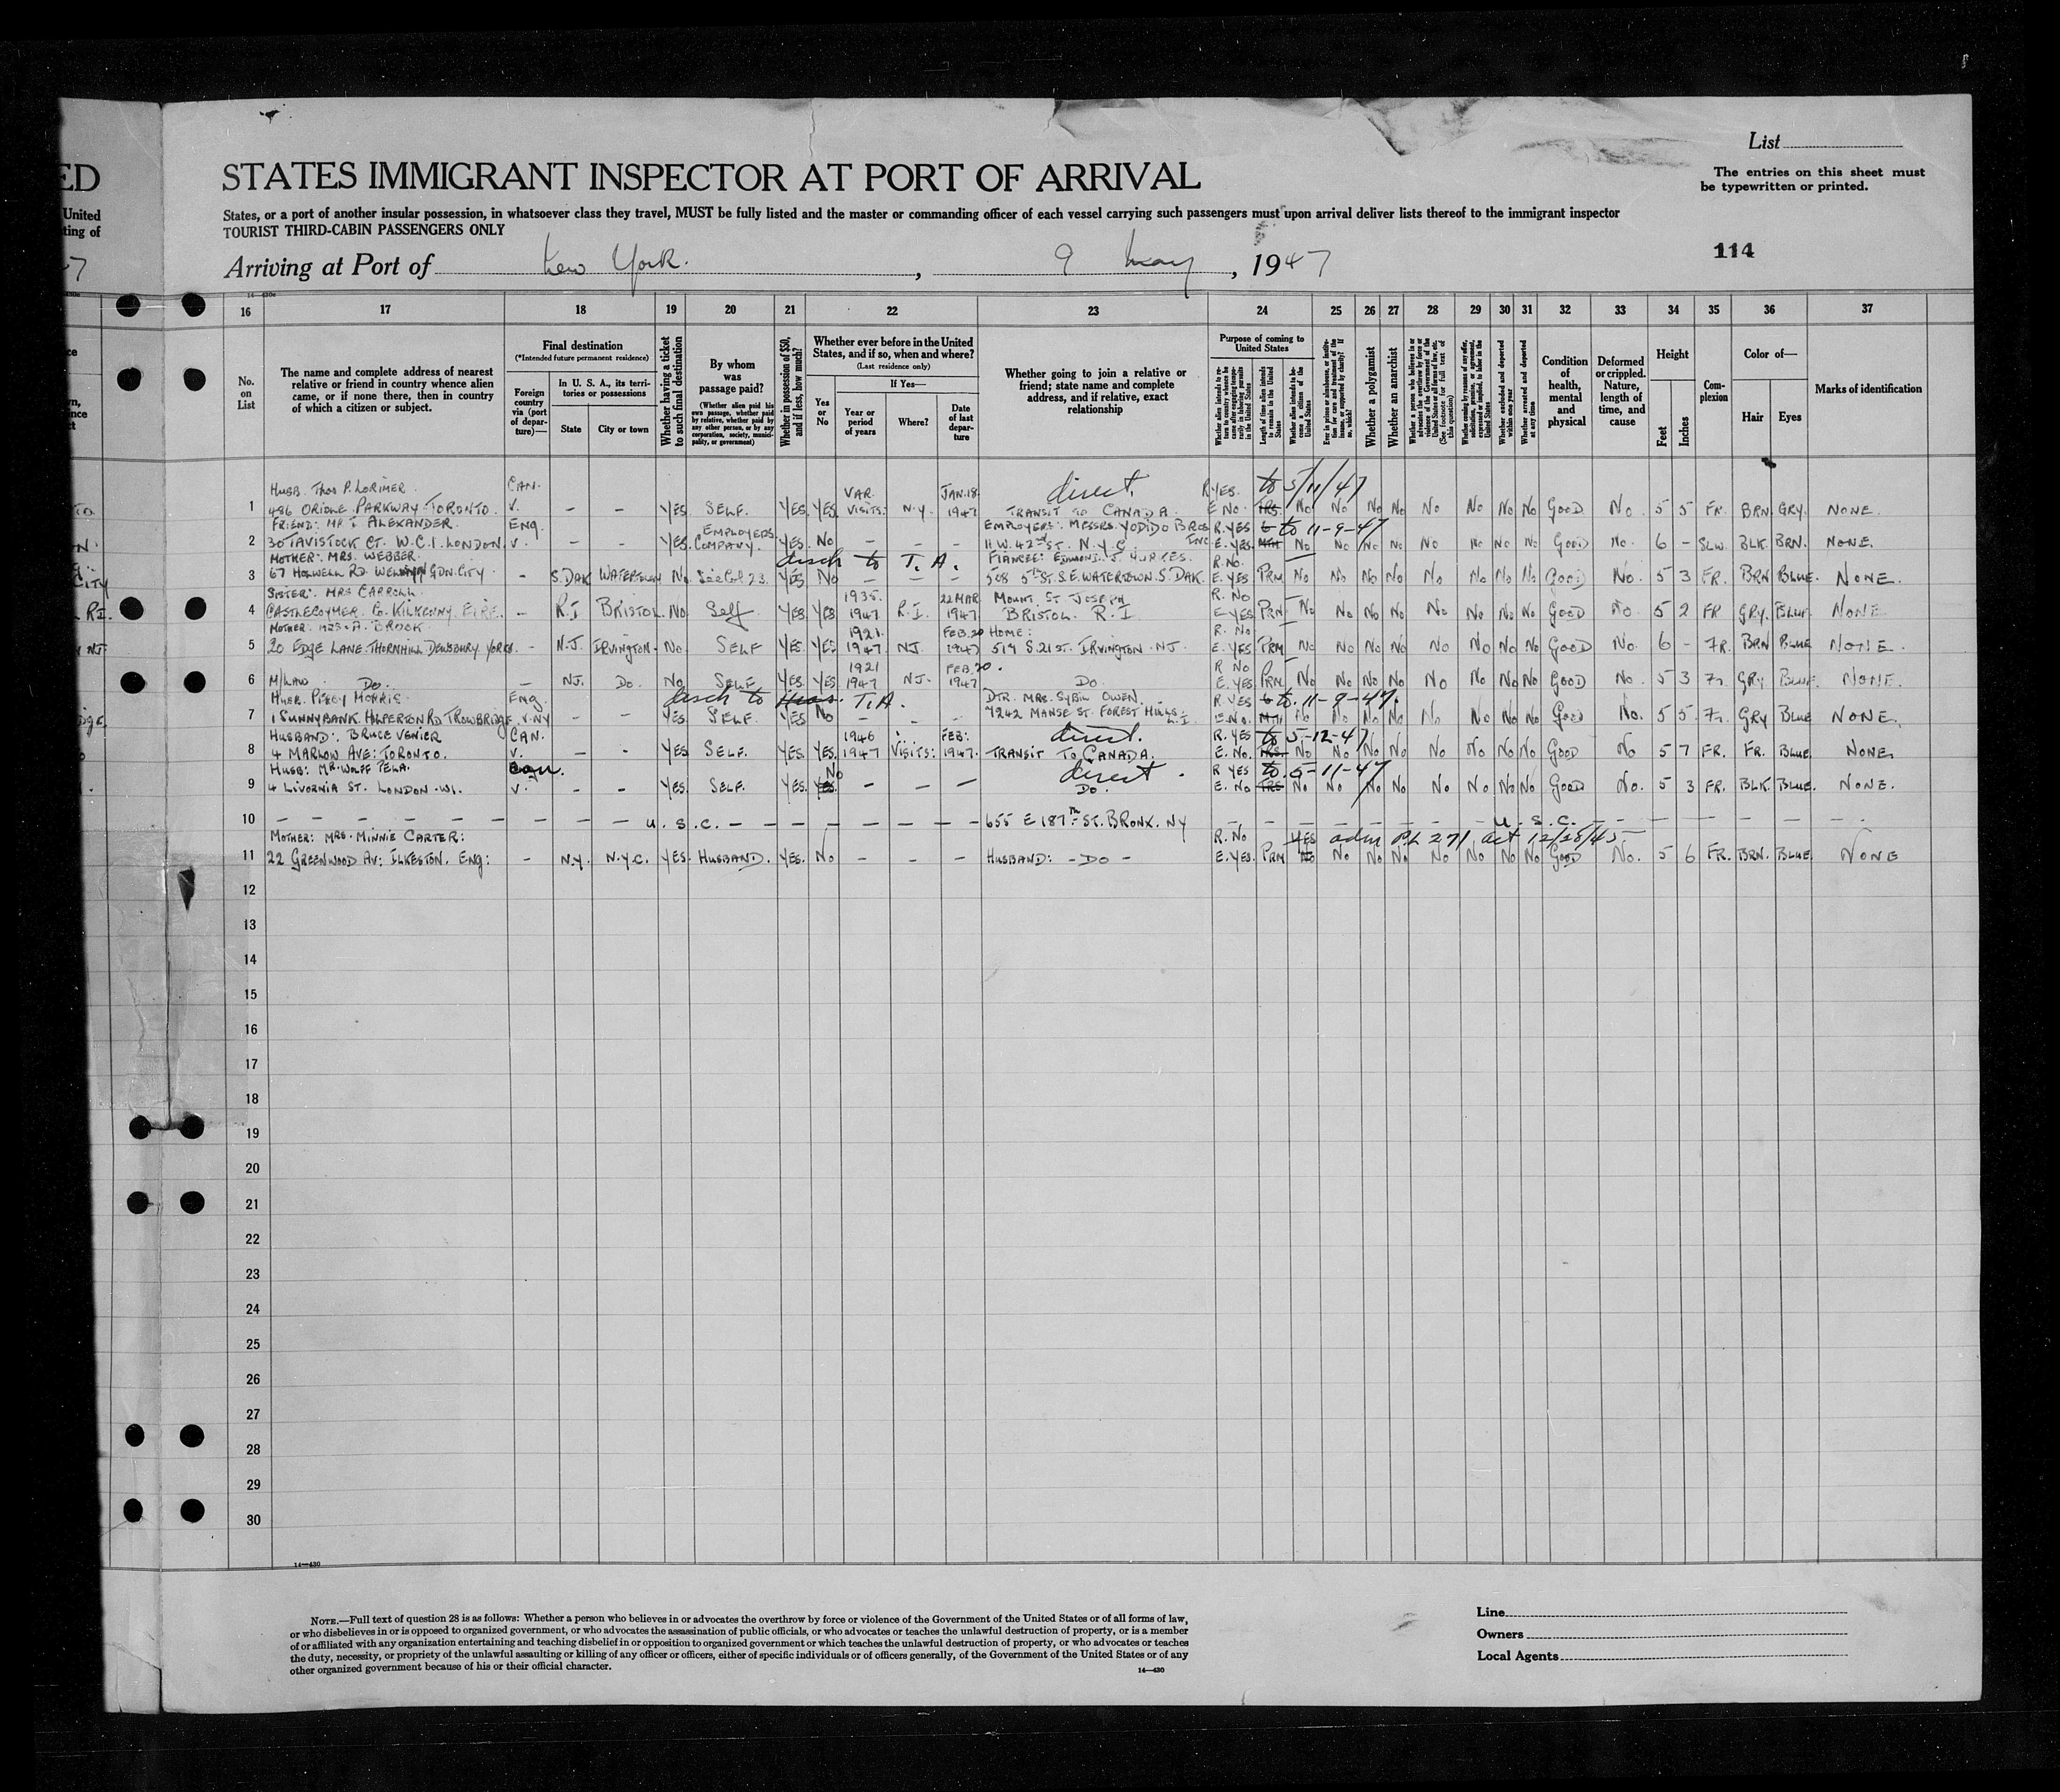 ED
United
ting of
7
List
The entries on this sheet must
be typewritten or printed.
STATES IMMIGRANT INSPECTOR AT PORT OF ARRIVAL
States, or a port of another insular possession, in whatsoever class they travel, MUST be fully listed and the master or commanding officer of each vessel carrying such passengers must upon arrival deliver lists thereof to the immigrant inspector
TOURIST THIRD-CABIN PASSENGERS ONLY
114
Arriving at Port of New York. , 9 May , 1947
16 17 18 19 20 21 22 23 24 25 26 27 28 29 30 31 32 33 34 35 36 37
No. on List
The name and complete address of nearest relative or friend in country whence alien came, or if none there, then in country of which a citizen or subject.
Final destination
(*Intended future permanent residence)
Foreign country via (port of departure)—
In U. S. A., its territories or possessions
State
City or town
Whether having a ticket to such final destination
By whom was passage paid?
(Whether alien paid his own passage, whether paid by relative, whether paid by any other person, or by any corporation, society, municipality, or government)
Whether in possession of $50, and if less, how much?
Whether ever before in the United States, and if so, when and where?
(Last residence only)
Yes or No
If Yes—
Year or period of years
Where?
Date of last departure
Whether going to join a relative or friend; state name and complete address, and if relative, exact relationship
Purpose of coming to United States
Whether alien intends to return to country whence he came after engaging temporarily in laboring pursuits in the United States
Length of time alien intends to remain in the United States
Whether alien intends to become a citizen of the United States
Ever in prison or almshouse, or institution for care and treatment of the insane, or supported by charity? If so, which?
Whether a polygamist
Whether an anarchist
Whether coming by reason of any offer, solicitation, promise, or agreement, expressed or implied, to labor in the United States
Whether excluded and deported within one year
Whether arrested and deported at any time
Condition of health, mental and physical
Deformed or crippled. Nature, length of time, and cause
Height
Feet
Inches
Complexion
Color of—
Hair
Eyes
Marks of identification
HUSB. THOS P. LORIMER CAN. VAR. JAN.18 direct. R YES. to 5/11/47
1 486 ORIOLE PARKWAY TORONTO. V. – – YES SELF. YES YES VISITS. N.Y. 1947 TRANSIT TO CANADA E NO TRS. No No No No No No No No GOOD No. 5 5 FR. BRN GRY. NONE.
FRIEND: MR I. ALEXANDER. ENG. EMPLOYERS EMPLOYERS: MESSRS. YODIDO BROS INC R. YES 6 to 11-9-47
2 30 TAVISTOCK CT. W.C.1. LONDON. V. – – YES. COMPANY. YES. NO – – – 11. W. 42nd ST. N.Y.C. E. YES. MTH No No No No No No No No GOOD No. 6 – SLW. BLK BRN. NONE.
MOTHER: MRS. WEBBER. disch to T. A. FIANCEE: R. NO.
3 67 HOLWELL RD. WELWYN GDN. CITY – S. DAK WATERTOWN No See Col 23. YES No – – – 508 5th ST. S.E. WATERTOWN. S. DAK. E. YES PRM No No No No No No No No GOOD No. 5 3 FR. BRN BLUE. NONE.
SISTER: MRS CARROLL 1935. 22 MAR MOUNT ST JOSEPH R. NO
4 CASTLECOMER. Co. KILKENNY. EIRE. – R.I BRISTOL. No. Self YES. YES 1947 R.I. 1947 BRISTOL. R.I E YES PRM No No No No No No No No GOOD No. 5 2 FR GRY. BLUE NONE
MOTHER: MRS. A. BROOK 1921. FEB. 20 HOME: R. NO
5 20 EDGE LANE. THORNHILL DEWSBURY YORKS. – N.J. IRVINGTON. No SELF YES. YES. 1947 NJ. 1947 519 S. 21 ST. IRVINGTON. NJ. E. YES PRM No No No No No No No No GOOD No. 6 – FR. BRN BLUE NONE.
M/LAW 1921 FEB. 20. R NO
6 DO. – NJ. DO. No SELF YES. YES 1947 NJ. 1947 DO. E. YES PRM No No No No No No No No GOOD No. 5 3 FR GRY BLUE. NONE.
HUSB. PERCY MORRIS ENG disch to T.A. DTR. MRS. SYBIL OWEN. R YES 6 to. 11-9-47.
7 1 SUNNYBANK. HILPERTON RD TROWBRIDGE. V. NY – – YES. SELF. YES No – – – MANSE ST. FOREST HILLS. L.I. E. NO. MTH No No No No No No No No GOOD No. 5 5 FR. GRY BLUE NONE.
HUSBAND: BRUCE VENIER CAN. 1946 FEB: direct. R. YES to 5-12-47
8 4 MARLOW AVE: TORONTO. V. – – YES SELF. YES. YES. 1947 VISITS: 1947. TRANSIT TO CANADA. E. NO. TRS. No No No No No No No No GOOD No 5 7 FR. FR. BLUE. NONE.
HUSB: MR. WOLFF PELA. No direct. R YES to. 5-11-47
9 4 LIVORNIA ST. LONDON. W1. V. – – YES. SELF. YES. YES. – – – DO. E. NO TRS No No No No No No No No GOOD No. 5 3 FR. BLK. BLUE. NONE.
10 – – – u. s. c. – – – 655 E 187th ST. BRONX. NY – – – u. s. c. – – –
MOTHER: MRS. MINNIE CARTER: R. NO YES adm PL 271 act 12/28/45
11 22 GREENWOOD AV: ILKESTON. ENG: – N.Y. N.Y.C. YES. HUSBAND. YES. No – – – HUSBAND: – DO – E. YES. PRM No No No No No No No No GOOD No. 5 6 FR. BRN. BLUE. NONE
12
13
14
15
16
17
18
19
20
21
22
23
24
25
26
27
28
29
30
14—430
NOTE.—Full text of question 28 is as follows: Whether a person who believes in or advocates the overthrow by force or violence of the Government of the United States or of all forms of law,
or who disbelieves in or is opposed to organized government, or who advocates the assassination of public officials, or who advocates or teaches the unlawful destruction of property, or is a member
of or affiliated with any organization entertaining and teaching disbelief in or opposition to organized government or which teaches the unlawful destruction of property, or who advocates or teaches
the duty, necessity, or propriety of the unlawful assaulting or killing of any officer or officers, either of specific individuals or of officers generally, of the Government of the United States or of any
other organized government because of his or their official character.
14—430
Line
Owners
Local Agents